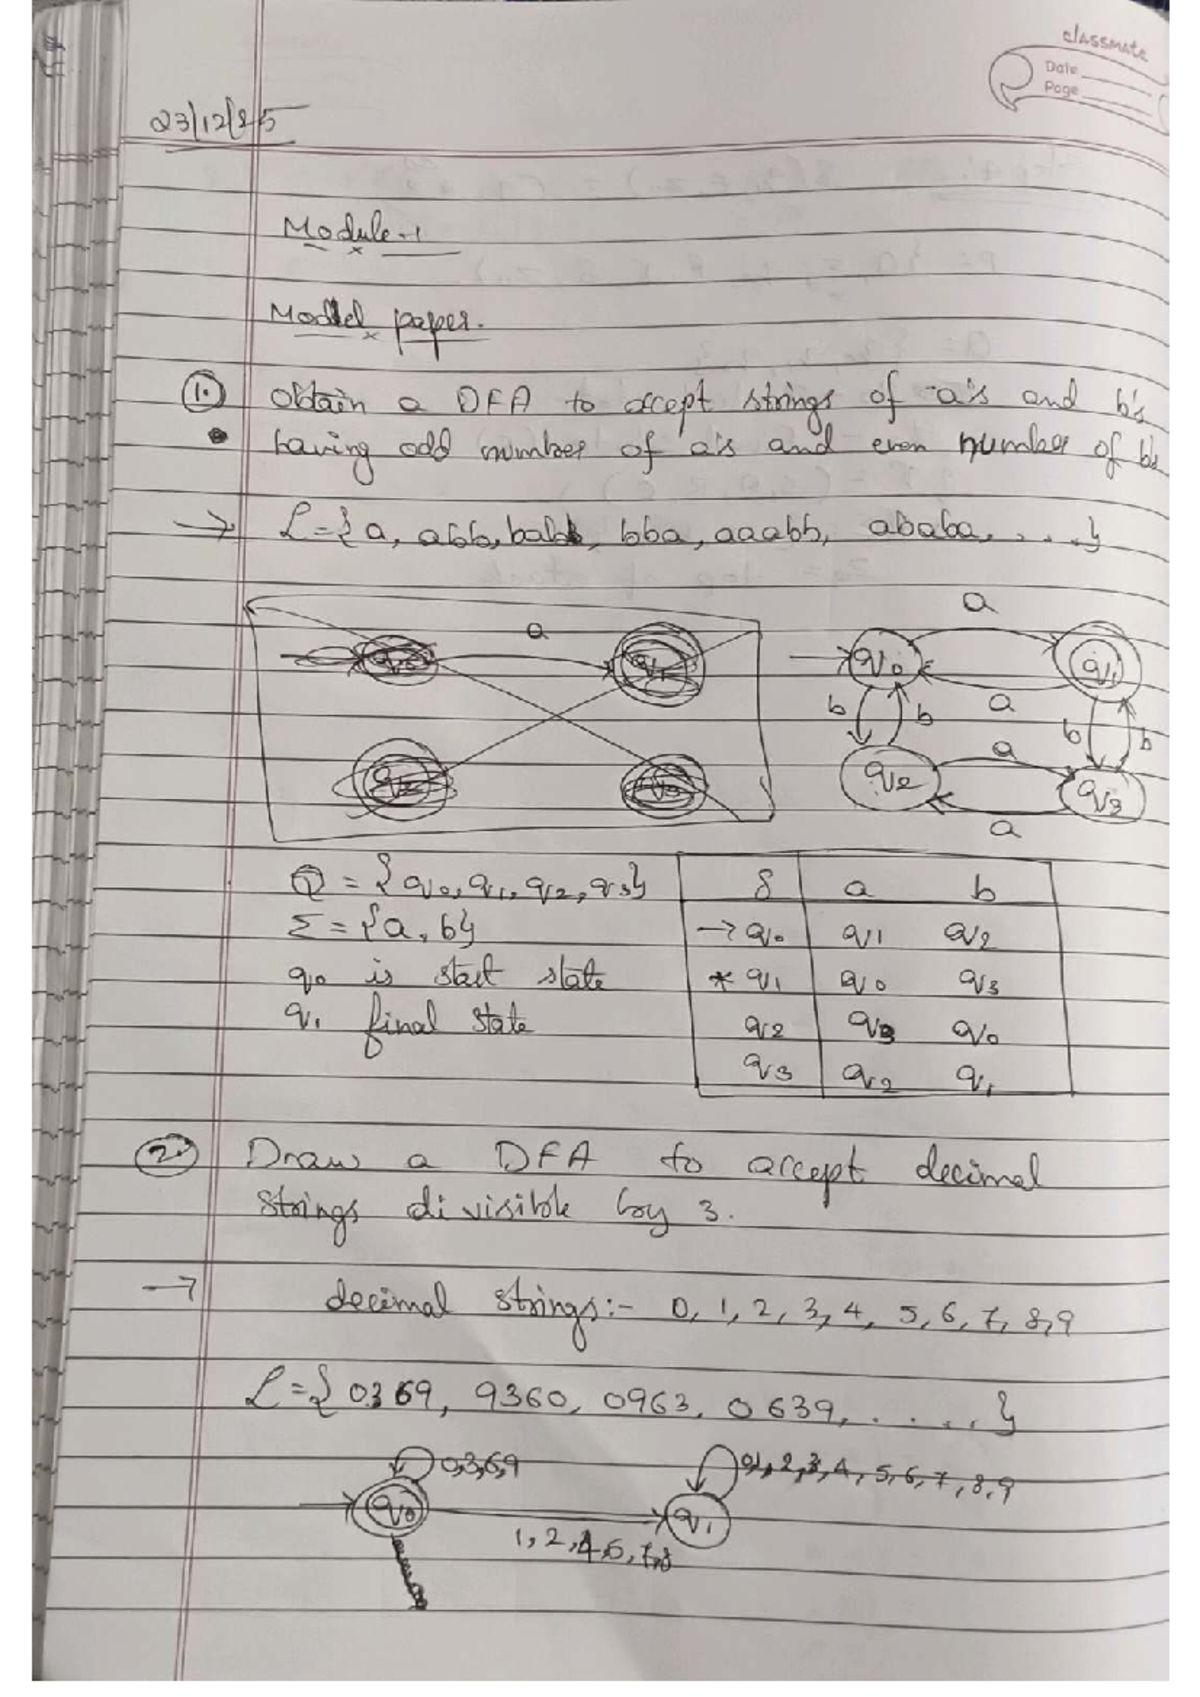 classmate
Date
Page
23/12/25
Module-1
Model paper.
1. Obtain a DFA to accept strings of a's and b's
having odd number of a's and even number of b's
→ L={a, abb, bab, bba, aaabb, ababa, ....}
a
a
q0 q1
q0 q1
b b a b b
a
q2 q3
q2 q3
a
Q = {q0, q1, q2, q3}
Σ = {a, b}
q0 is start state
q1 final state
δ a b
→ q0 q1 q2
* q1 q0 q3
q2 q3 q0
q3 q2 q1
2. Draw a DFA to accept decimal
strings divisible by 3.
→ decimal strings:- 0, 1, 2, 3, 4, 5, 6, 7, 8, 9
L={0369, 9360, 0963, 0639, .....}
0,3,6,9 0,1,2,3,4,5,6,7,8,9
q0 q1
1, 2, 4, 5, 7, 8